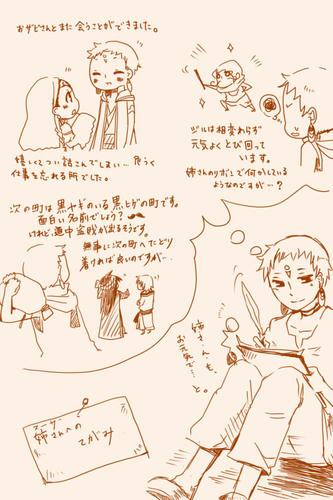 おザどさんとまた会うことができました。
嬉しくてつい話こんでしまい…危うく
仕事を忘れる所でした。
ジルは相変わらず
元気よくとび回って
います。
姉さんのリボンで何かしている
ようなのですが…?
次の町は黒ヤギのいる黒ヒゲの町です。
面白い名前でしょう?
けれど、道中盗賊が出るそうです。
無事に次の町へたどり
着ければ良いのですが…
姉さんも、
お元気で…と。
姉さんへの
てがみ